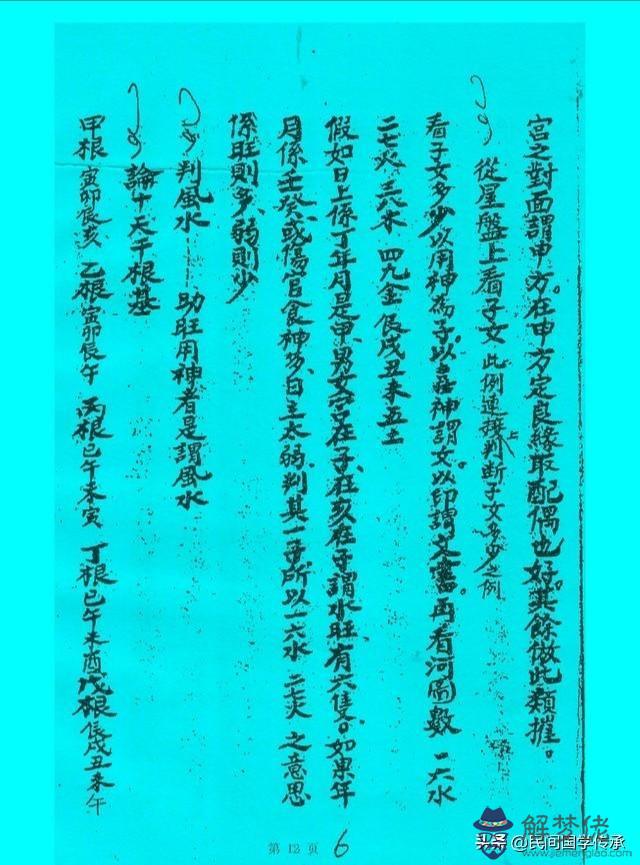 宮之對面謂申方。在申方定良緣取配偶也好。其餘倣此類推。
從星盤上看子女 此例連接上判断子女多少之例
看子女多少以用神為子以喜神謂女。以印謂文書。再看河圖數 一六水
二七火 三八木 四九金 辰戌丑未五土
假如日上係丁年月是甲、男女宮在子、在亥在子謂水旺、有六隻。如果年
月係壬癸、或傷官食神多、日主太弱、判其一子、所以一六水 二七火 之意思
係旺則多、弱則少
判風水 助旺用神者是謂風水
論十天干根基
甲根 寅卯辰亥 乙根 寅卯辰午 丙根 巳午未寅 丁根 巳午未酉 戊根 辰戌丑未午
第 12 页 6
头条 @民间国学传承
解梦佬
www.jiemenglao.com